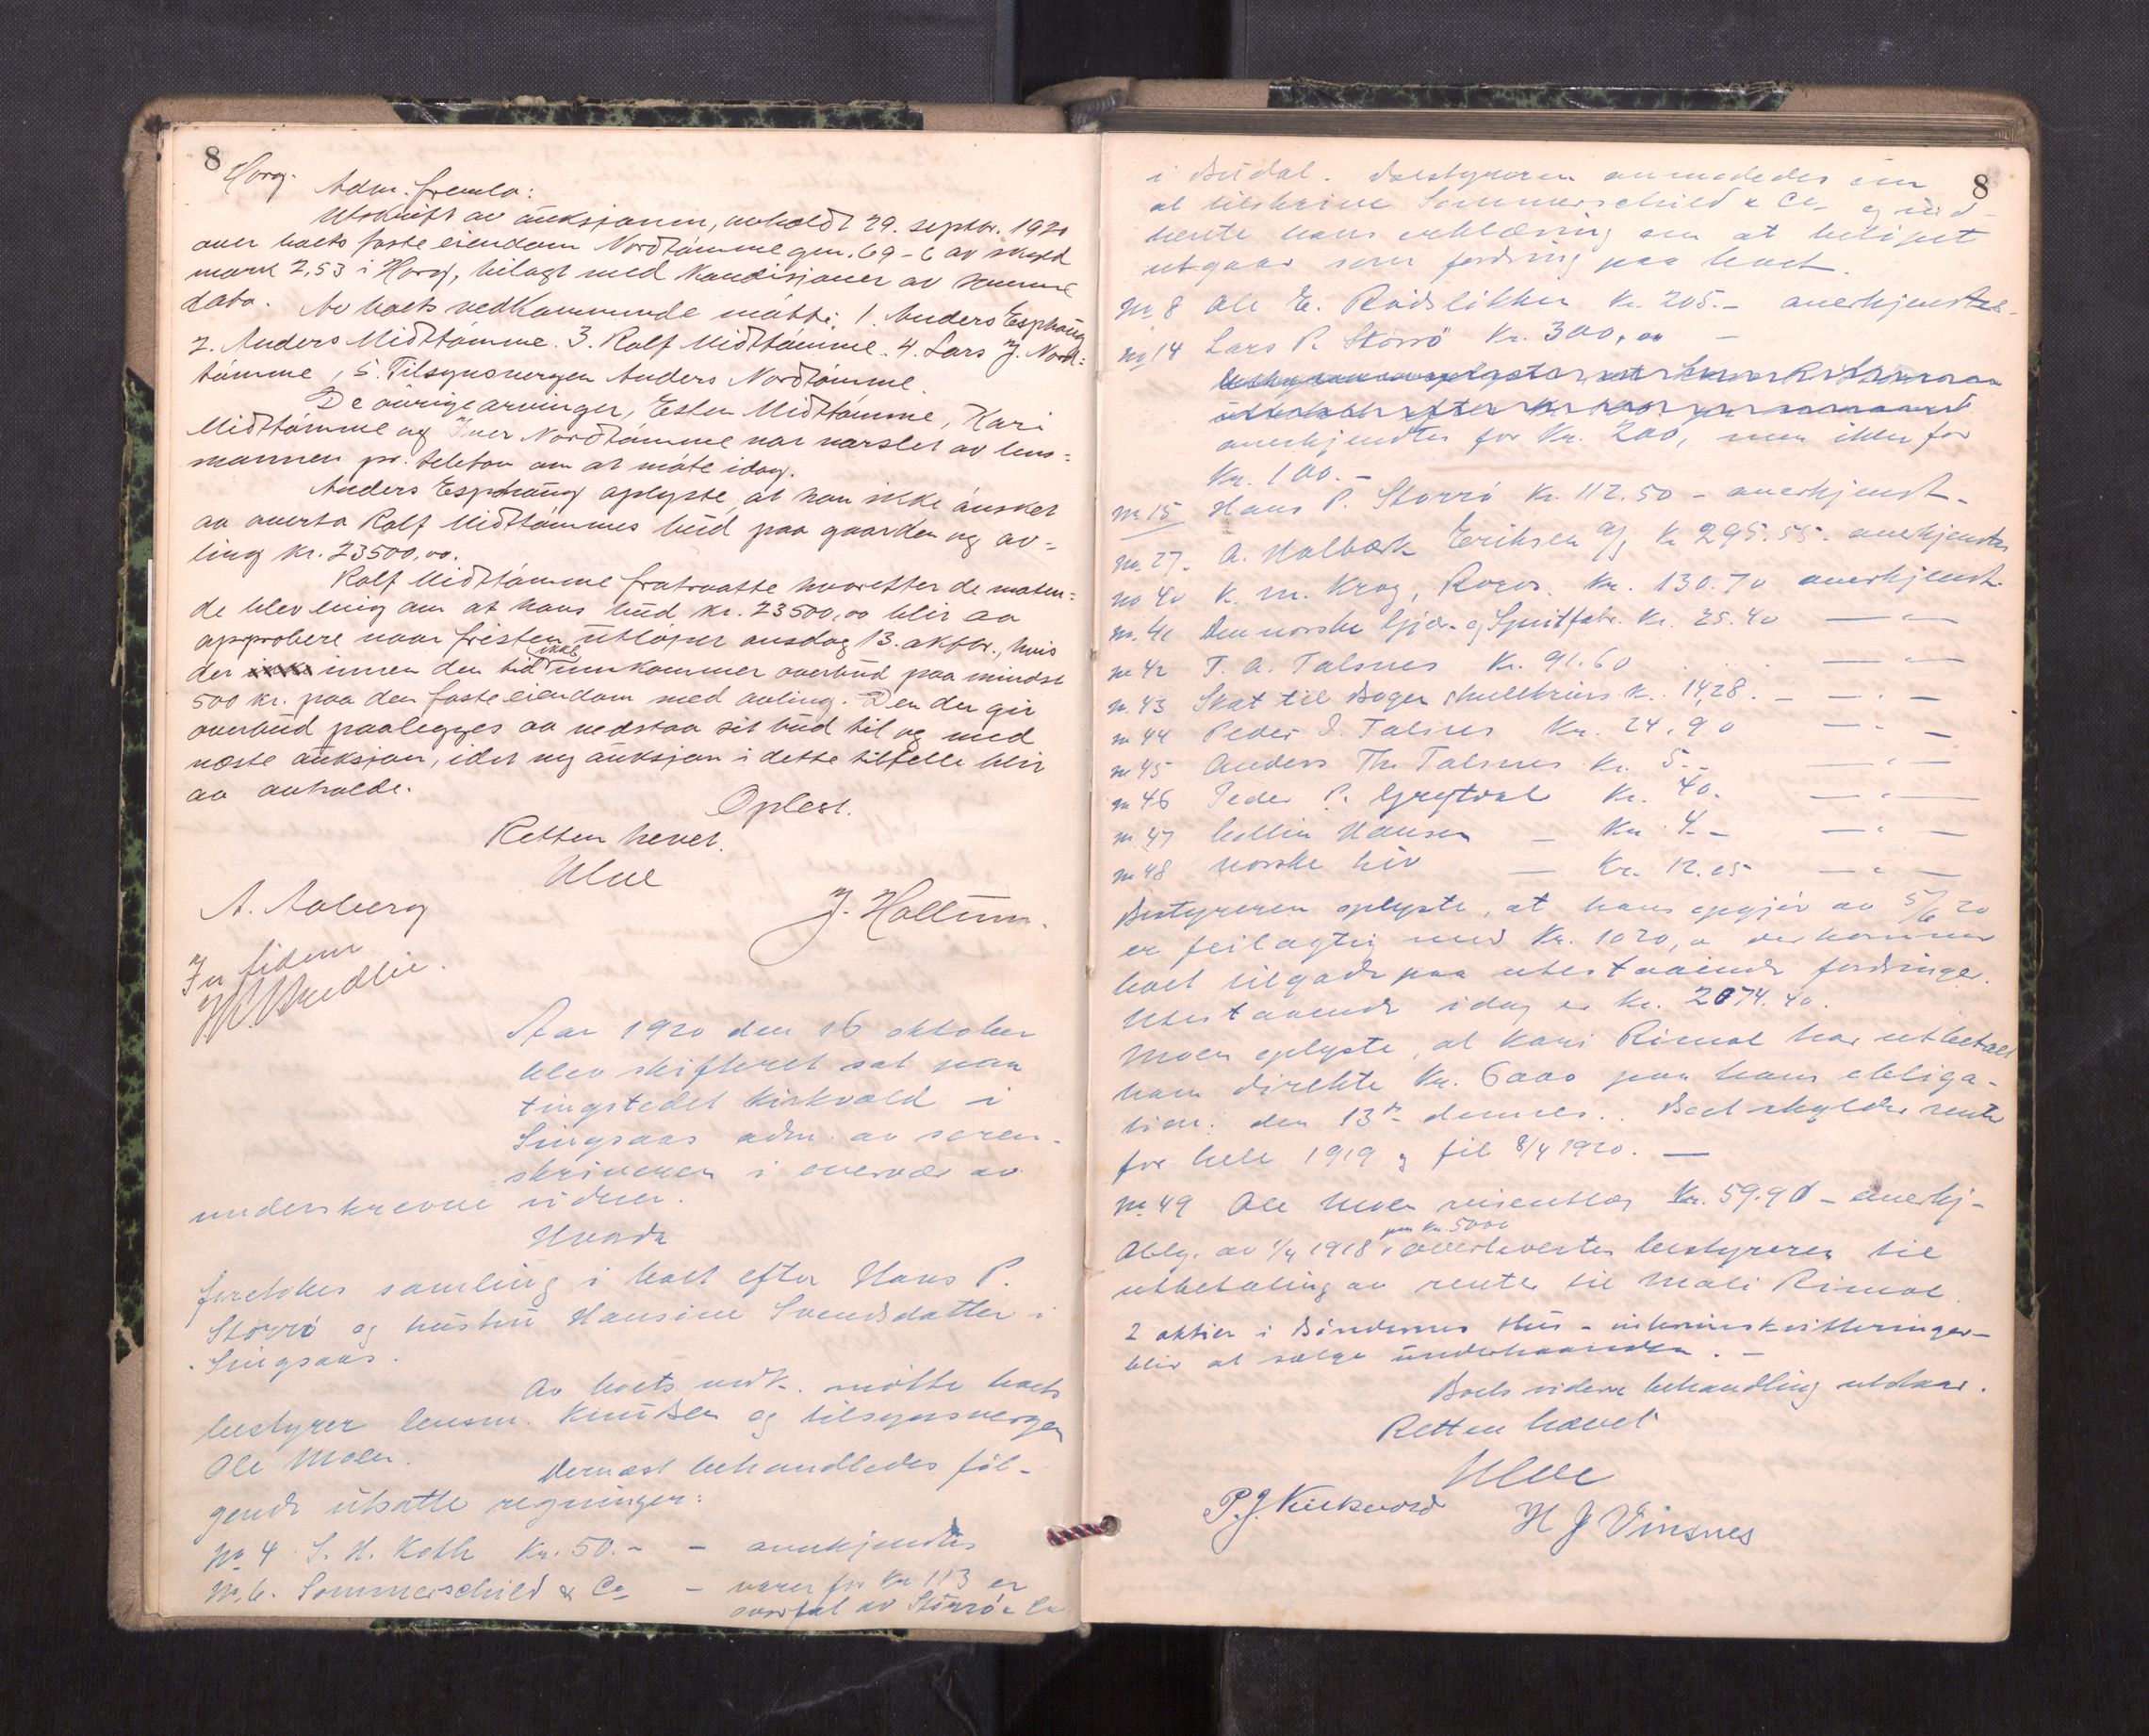 8
Horg.
Adm. fremla:
Utskrift av auksjonen, avholdt 29. septbr. 1920
over boets faste eiendom Nordtømme gnr. 69-6 av skyld
mark 2,53 i Horg, bilagt med kondisjoner av samme
dato. Av boets vedkommende møtte: 1. Anders Esphaug
2. Anders Midttømme. 3. Rolf Midttømme. 4. Lars J. Nord-
tømme, 5. Tilsynsvergen Anders Nordtømme.
De øvrige arvinger, Esten Midttømme, Kari
Midttømme og Iver Nordtømme var varslet av lens=
mannen pr. telefon om at møte idag.
Anders Esphaug oplyste, at han ikke ønsket
aa overta Rolf Midttømmes bud paa gaarden og av=
ling kr. 23500,00.
Rolf Midttømme fratraatte hvoretter de møten=
de blev enig om at hans bud kr. 23500,00 blir aa
approbere naar fristen utløper onsdag 13. oktbr., hvis
der ikke innen den tid ikke innkommer overbud paa mindst
500 kr. paa den faste eiendom med avling. Den der gir
overbud paalegges aa vedstaa sit bud til og med
næste auksjon, idet ny auksjon i dette tilfelle blir
aa avholde.
Oplest.
Retten hevet.
Ulve
A. Aaberg
J. Hollum.
In fidem
Aar 1920 den 16 oktober
blev skifteret sat paa
tingstedet Kirkvold i
Singsaas adm. av soren-
skriveren i overvær av
underskrevne vidner.
Hvorda
foretokes samling i boet efter Hans P.
Storrø og hustru Hansine Svendsdatter i
Singsaas.
Av boets vedk. møtte boets
bestyrer lensm. Knutsen og tilsynsvergen
Ole Moen.
Dernæst behandledes føl-
gende utsatte regninger:
No 4 S. H. Koth Kr. 50.- - anerkjendtes
No 6. Sommerschild & Co - varer for Kr 113 er
av Storrø & Co
8
i Budal. Bestyreren anmodedes om
at tilskrive Sommerschild & Co og ind-
hente hans erklæring om at beløpet
utgaar som fordring paa boet.
No 8 Ole E. Rødslikken Kr. 205.- anerkjendtes.
No 14 Lars P. Storrø Kr. 300,00 -
anerkjendtes for Kr. 200, men ikke for
Kr. 100.-
No 15 Hans P. Storrø Kr. 112.50 - anerkjendt-
No. 27. A. Holbæk Eriksen A/S Kr 295.55. anerkjendtes
No 40 K. M. Krog, Røros. Kr. 130.70 anerkjendt
No. 41 Den norske Gjær- og Spritfabr. Kr. 25.40 — " —
No 42 T. A. Talsnes Kr. 91.60 . . . — " —
No. 43 Skat til Bogen skullbruvs K. 14,28. - — " —
No 44 Peder J. Talsnes Kr. 24.90 — " —
No 45 Anders Th. Talsnes Kr. 5.- — " —
No 46 Peder P. Grytdal Kr. 40. — " —
No. 47 Collin Hansen — Kr. 4.- — " —
No 48 Norske Liv — Kr. 12.05 — " —
Bestyreren oplyste, at hans opgjør av 5/6 20
er feilagtig med Kr. 1020, der kommer
boet tilgode paa utestaaende fordringer.
Utestaaende idag er kr. 2074.40.
Moen oplyste, at Kari Rimol har utbetalt
ham direkte Kr. 6000 paa hans obliga-
tion. den 13de dennes. Boet skylder renter
for hele 1919 og til 8/4 1920. —
No. 49 Ole Moen reiseutlæg Kr. 59.90 - anerkj-
Oblg. av 1/4 1918 paa Kr. 5000 overleverte bestyreren til
utbetaling av renter til Mali Rimol.
2 aktier i Bøndernes Hus - interimskvitteringer-
blir at sælge underhaanden. -
Boets videre behandling utstaar.
Retten hævet
Ulve
P. J. Kirkvold
H J Vinsnes